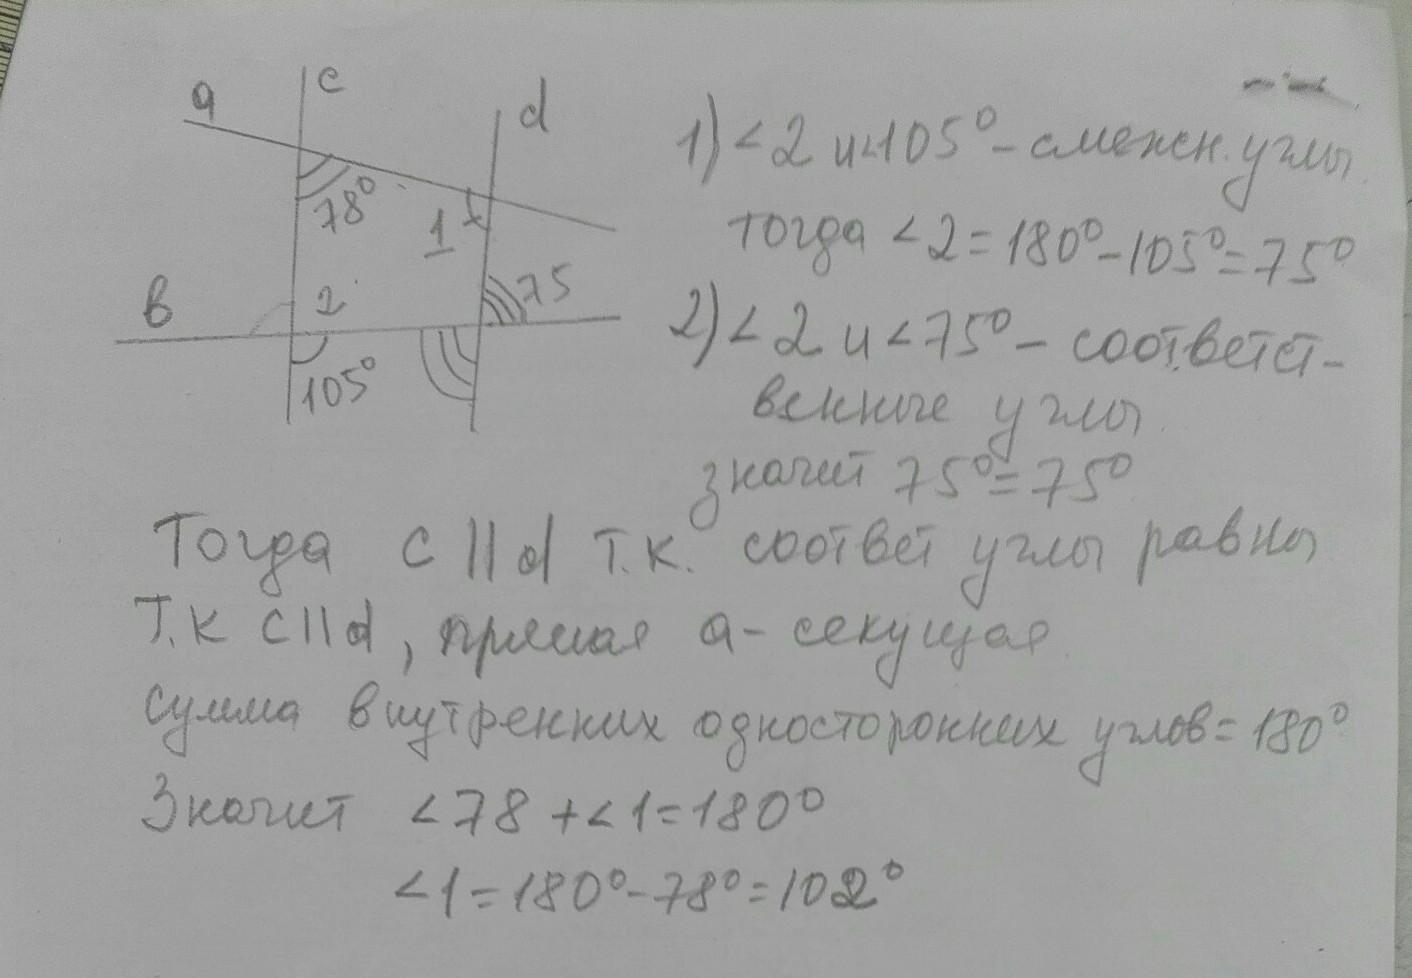 a
c
d
78°
1
в
2
75
105°
1) <2 и <105° - смежн. углы
тогда <2 = 180° - 105° = 75°
2) <2 и <75° - соответст-
венные углы
значит 75° = 75°
Тогда c || d т.к. соответ углы равны
Т.к c || d, прямая a - секущая
сумма внутренних односторонних углов = 180°
Значит <78 + <1 = 180°
<1 = 180° - 78° = 102°